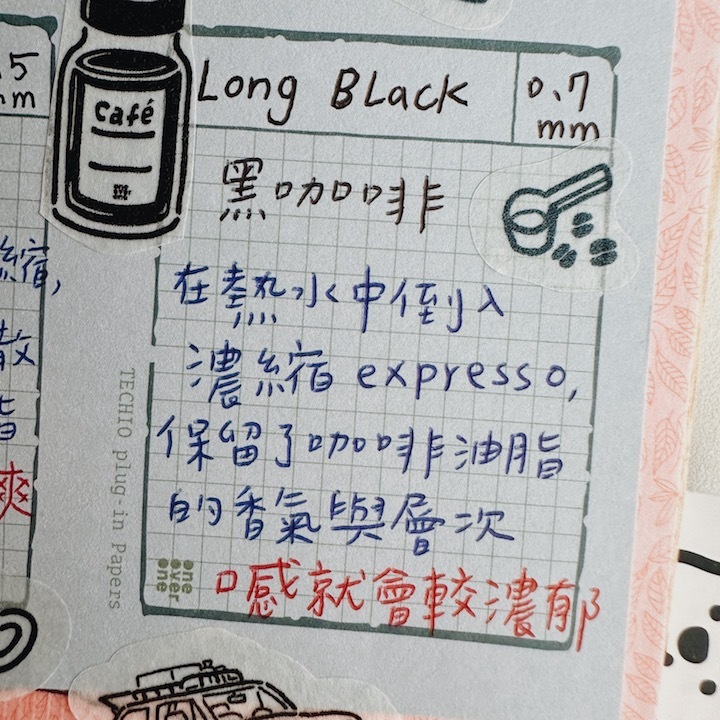 .5
mm
Café
Long Black
0.7
mm
黑咖啡
在熱水中倒入
濃縮 expresso,
保留了咖啡油脂
的香氣與層次
口感就會較濃郁
縮,
散
脂
爽
TECHIO plug-in Papers
one
over
one